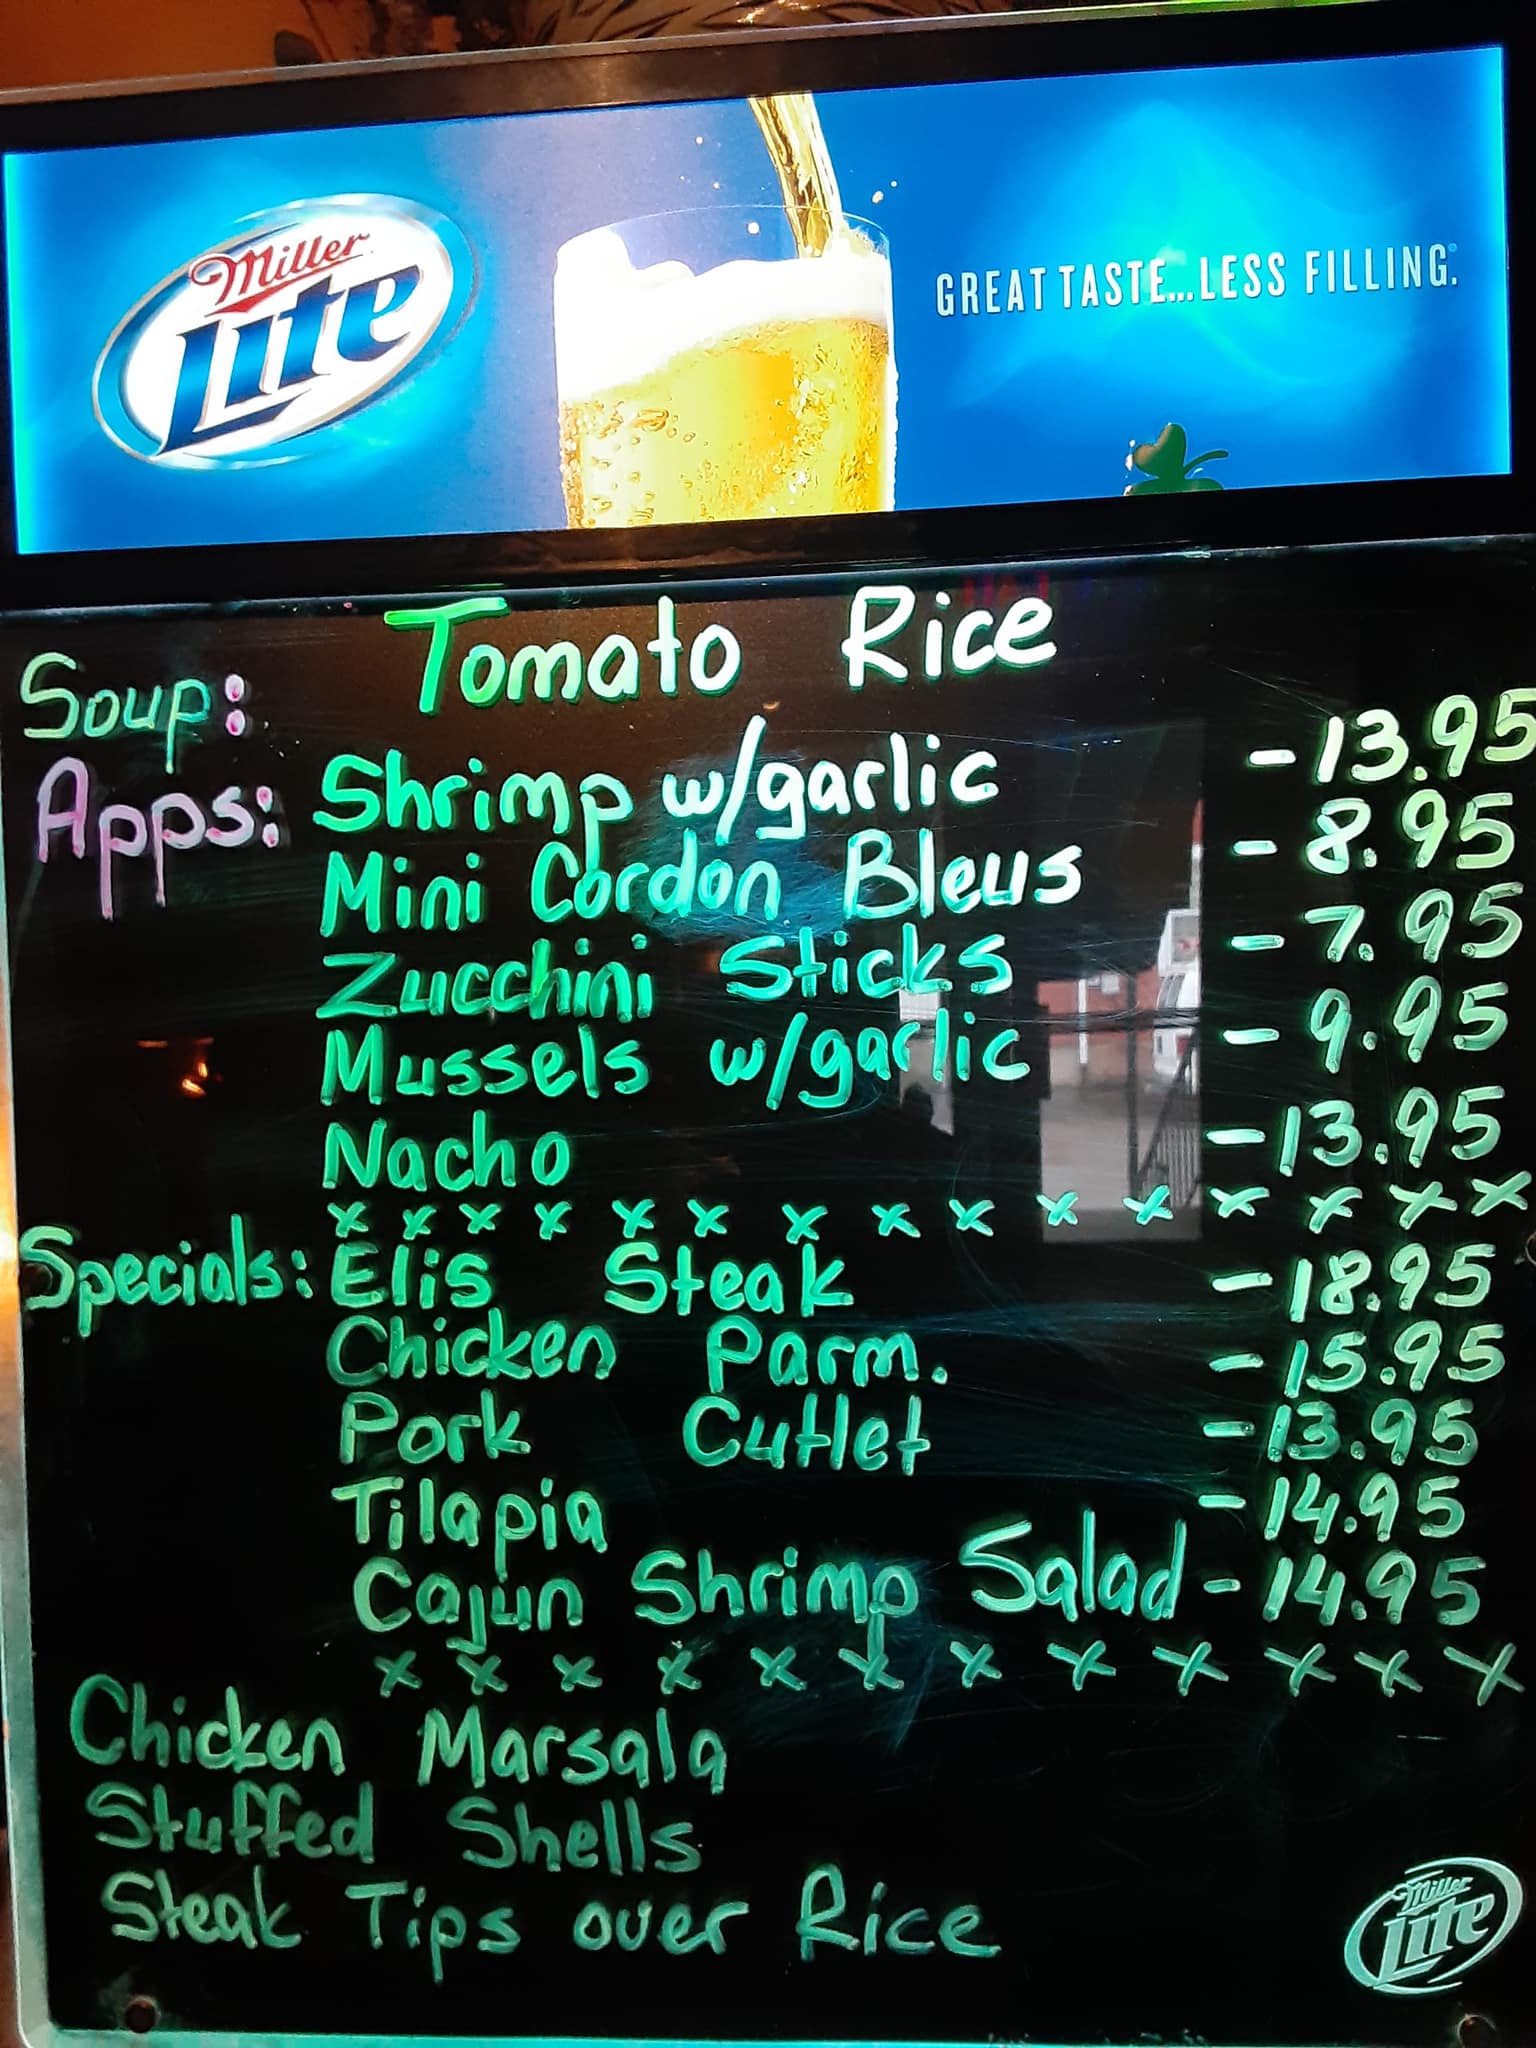 Miller
Lite
GREAT TASTE...LESS FILLING.
Soup: Tomato Rice
Apps: Shrimp w/garlic - 13.95
Mini Cordon Bleus - 8.95
Zucchini Sticks - 7.95
Mussels w/garlic - 9.95
Nacho - 13.95
x x x x x x x x x x x x x x x
Specials: Elis Steak - 18.95
Chicken Parm. - 15.95
Pork Cutlet - 13.95
Tilapia - 14.95
Cajun Shrimp Salad - 14.95
x x x x x x x x x x x x
Chicken Marsala
Stuffed Shells
Steak Tips over Rice
Miller
Lite